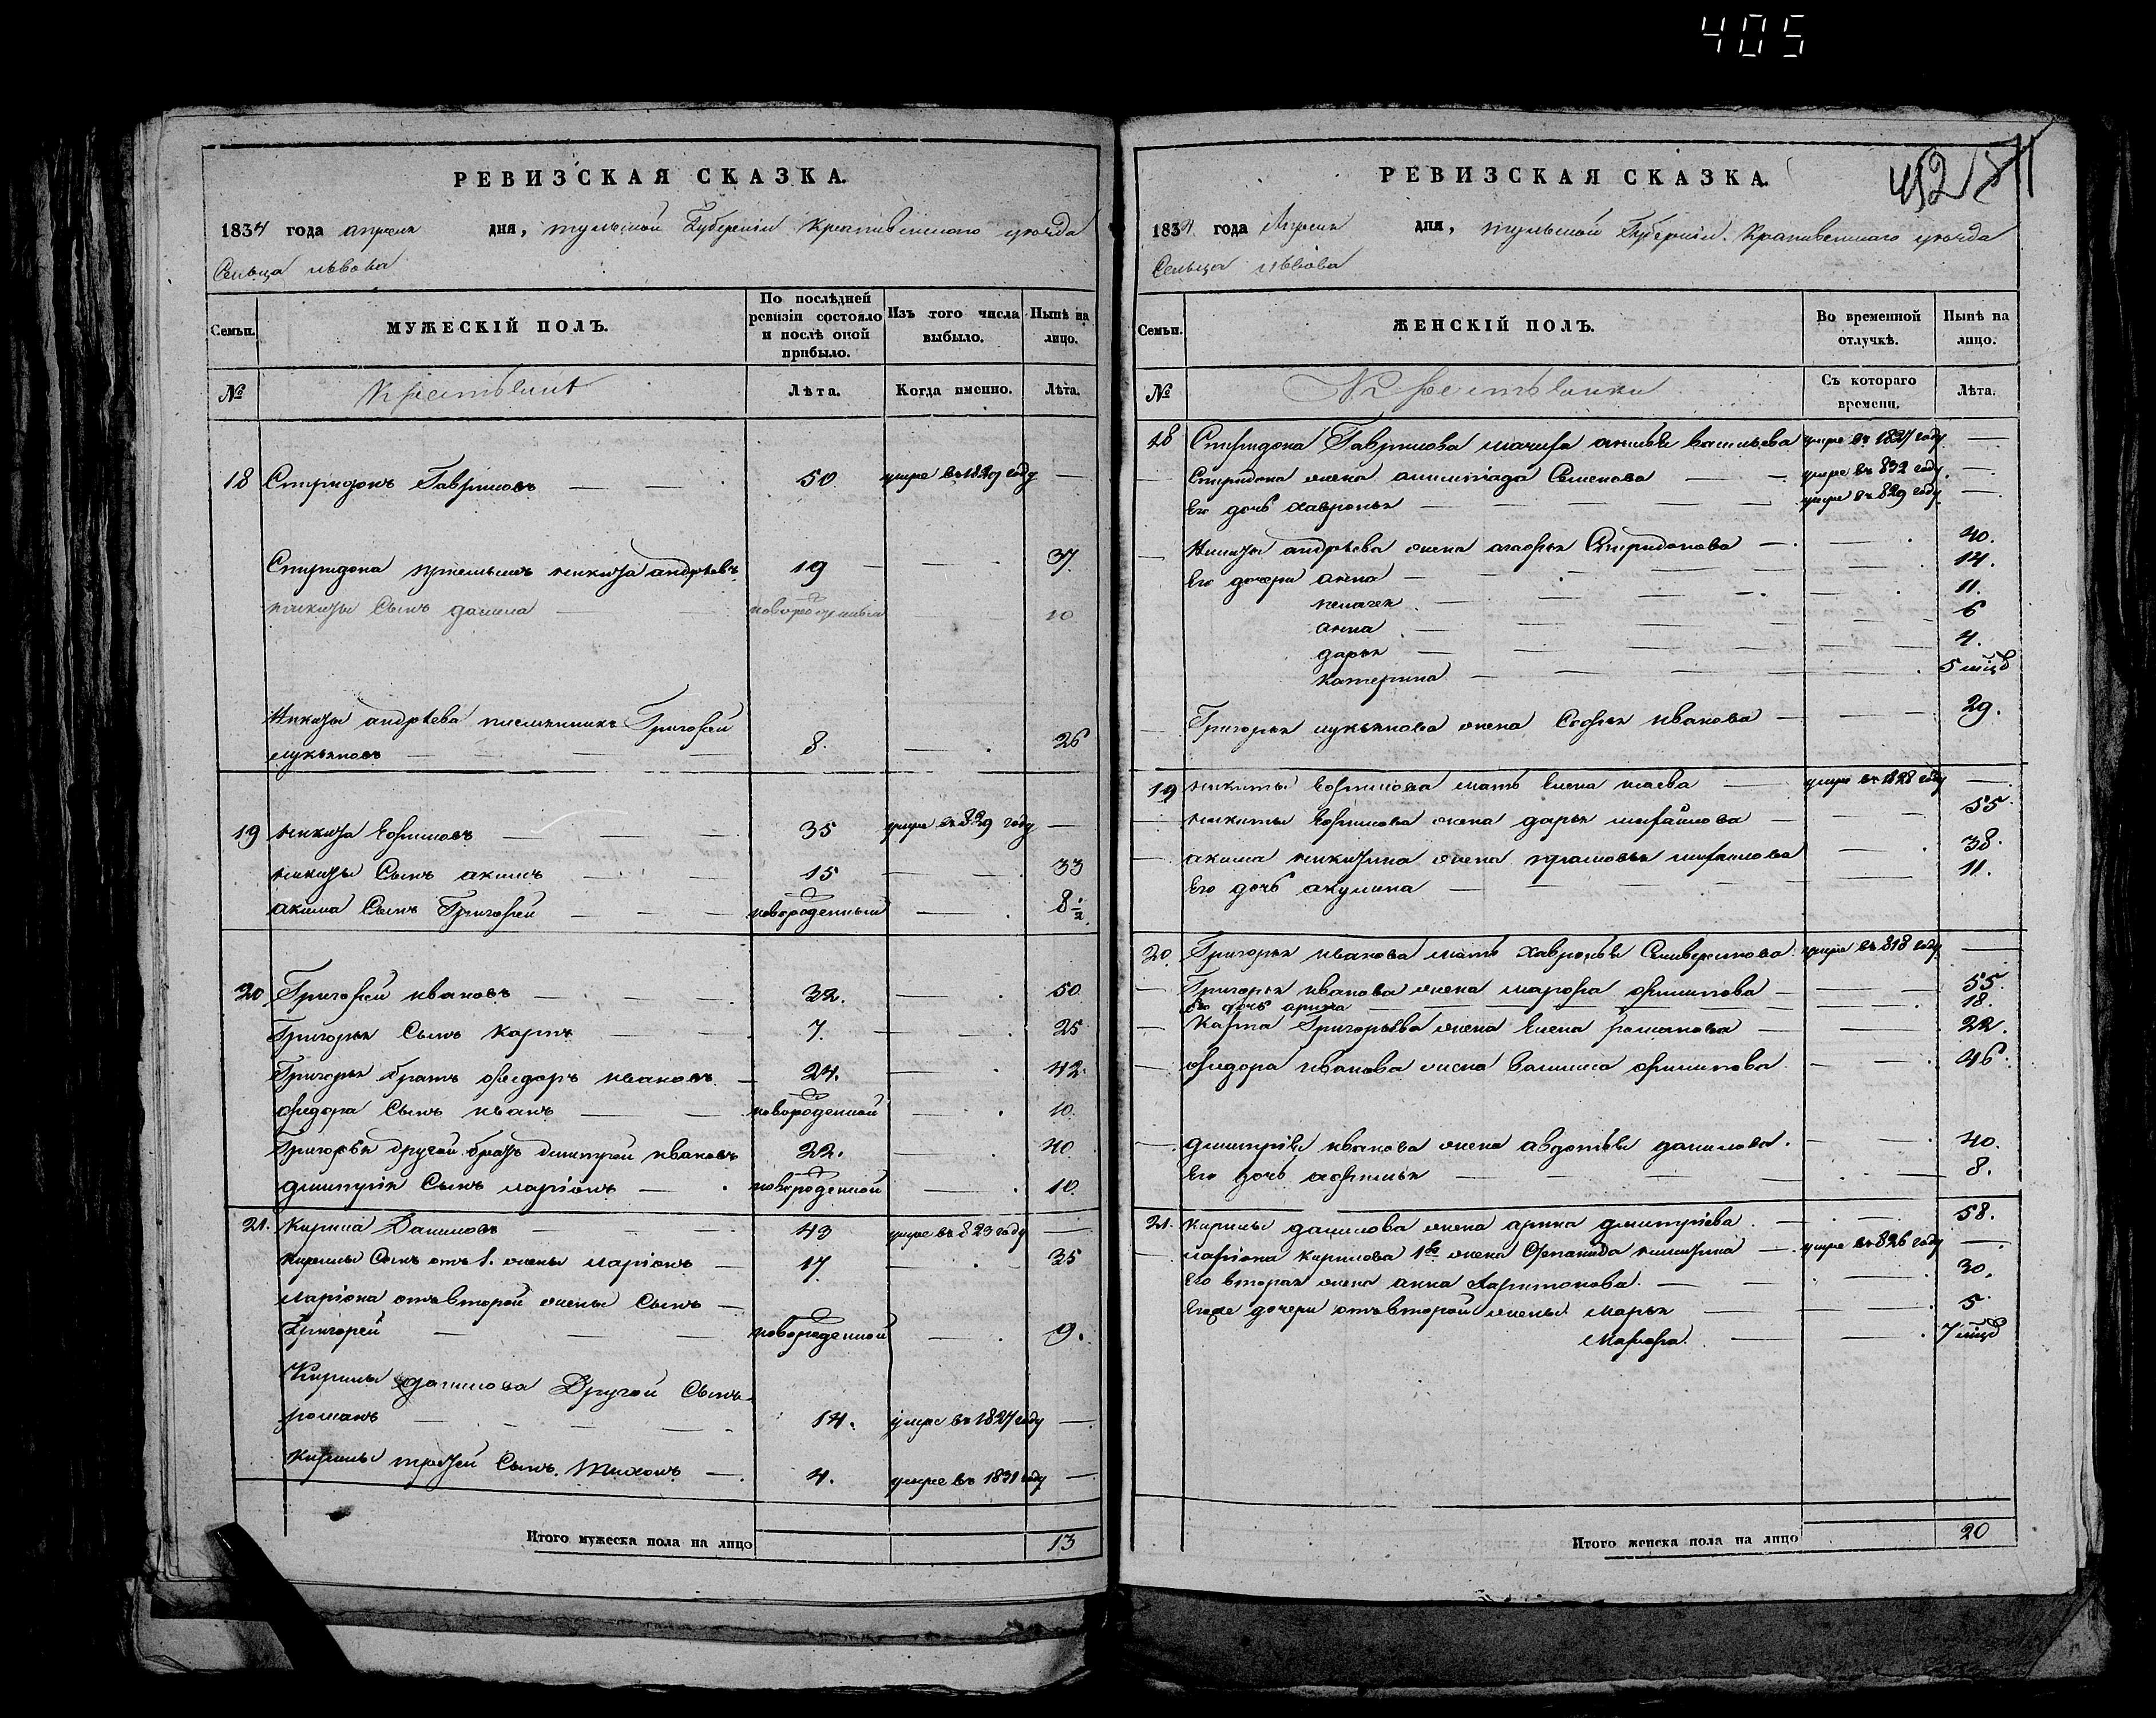 405
РЕВИЗСКАЯ СКАЗКА.
1834 года апреля дня, тульской Губернiи крапивенскаго уѣзда
Сельца львова
Семьи. МУЖЕСКIЙ ПОЛЪ. По послѣдней ревизiи состояло и послѣ оной прибыло. Изъ того числа выбыло. Нынѣ на лицо.
№ Крестьяне Лѣта. Когда именно. Лѣта.
18 Спиридонъ Гавриловъ — 50 умре въ 1829 году —
Спиридона приемышъ никита андрѣевъ 19 — 37
никиты Сынъ данила — новорожденный — 10
Никиты андрѣева племянникъ Григорей
лукьяновъ — 8. — 26
19 никита Ефимовъ — 35 умре въ 829 году —
никиты Сынъ акимъ — 15 — 33
акима Сынъ Григорей — новорожденный — 8 1/2
20 Григорей ивановъ — 32. — 50
Григорья Сынъ карпъ — 7. — 25
Григорья братъ федоръ ивановъ — 24. — 42.
федора Сынъ иванъ — новорожденной — 10.
Григорья другой братъ дмитрей ивановъ 22. — 40
дмитрия Сынъ ларiонъ — новорожденной — 10.
21. Кирила Даниловъ — 43 умре въ 823 году —
Кирилы Сынъ отъ 1. жены ларiонъ — 17 — 35
ларiона отъ второй жены Сынъ —
Григорей — новорожденной — 9.
Кирилы данилова Другой Сынъ
романъ — 14. умре въ 1827 году —
Кирилы третей Сынъ Тихонъ — 4. умре въ 1831 году —
Итого мужеска пола на лицо 13
РЕВИЗСКАЯ СКАЗКА.
1834 года Апреля дня, тульской Губернiи. Крапивенскаго уѣзда
Сельца львова
Семьи. ЖЕНСКIЙ ПОЛЪ. Во временной отлучкѣ. Нынѣ на лицо.
№ Крестьянки Съ котораго времени. Лѣта.
18 Спиридона Гаврилова мачиха васильева умре въ 1827 году —
Спиридона жена Семенова — умре въ 832 году —
Его дочь хавронья — умре въ 829 году —
Никиты андрѣева жена агафья Спиридонова — 40.
Его дочери анна — 14.
пелагея — 11.
анна — 6
дарья — 4.
катерина — 5 мѣсц
Григорья лукьянова жена Софья иванова — 29.
19 никиты Ефимова мать Елена умре въ 1828 году —
никиты Ефимова жена дарья михайлова — 55
акима никитина жена прасковья михайлова — 38.
Его дочь акулина — 11.
20 Григорья иванова мать хавронья Селиверстова умре въ 818 году —
Григорья иванова жена марфа филипова — 55.
Его дочь арина — 18.
Карпа Григорьева жена Елена романова — 22.
федора иванова жена василиса филипова — 46.
дмитрiя иванова жена авдотья данилова. — 40
Его дочь афимья — 8.
21. кирилы данилова жена арина дмитрiева. — 58.
ларiона кирилова 1я жена Степанида никитина — умре въ 826 году —
Его вторая жена анна Харитонова. — 30.
Его же дочери отъ второй жены марья — 5
Марфа. — 7 мѣсц
Итого женска пола на лицо 20